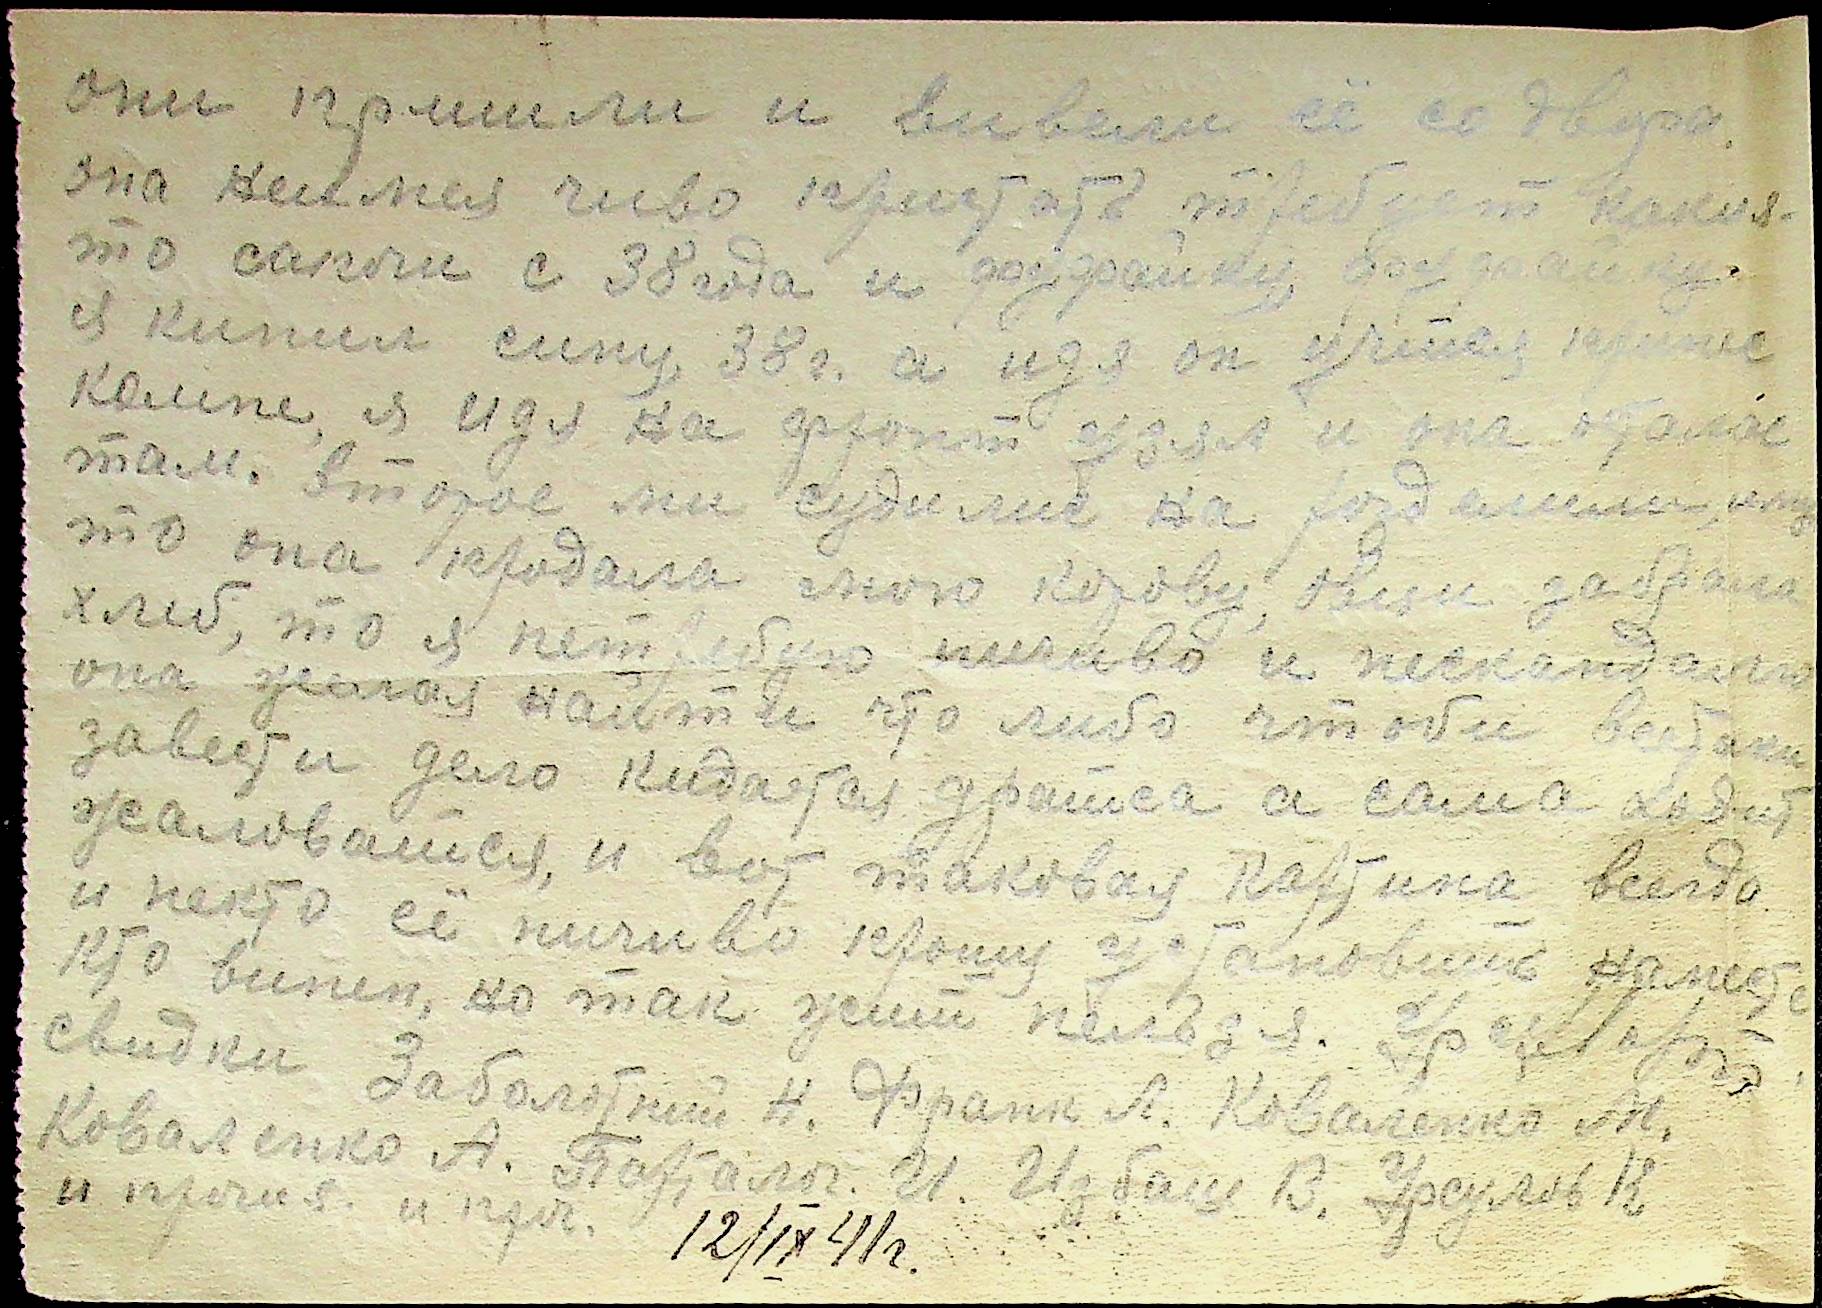 они пришли и вивели её со двора.
она неимея чиво пристать требует какия-
то сапоги с 38 года и фуфайку, фуфайку
я купил сину 38 г. а идя он учится принс
комне, я идя на фронт узял и она осталас
там. второе ми судилис на розделили, ему
то она продала мою корову, овци забрала
хлеб, то я нетребую ничиво и нескандалю
она желая найти что либо чтоби всётаки
завести дело кидается дратса а сама ходит
жаловатся, и вот таковая картина всегда
и некто её ничиво прошу установить наместе
кто винен, но так жит нельзя.
свидки Заболотний Н. Франк Л. Коваленко М.
Коваленко А. Паталог. И. Избаш В. Урсулов К
и прочия. и проч.
12/IX 41 г.